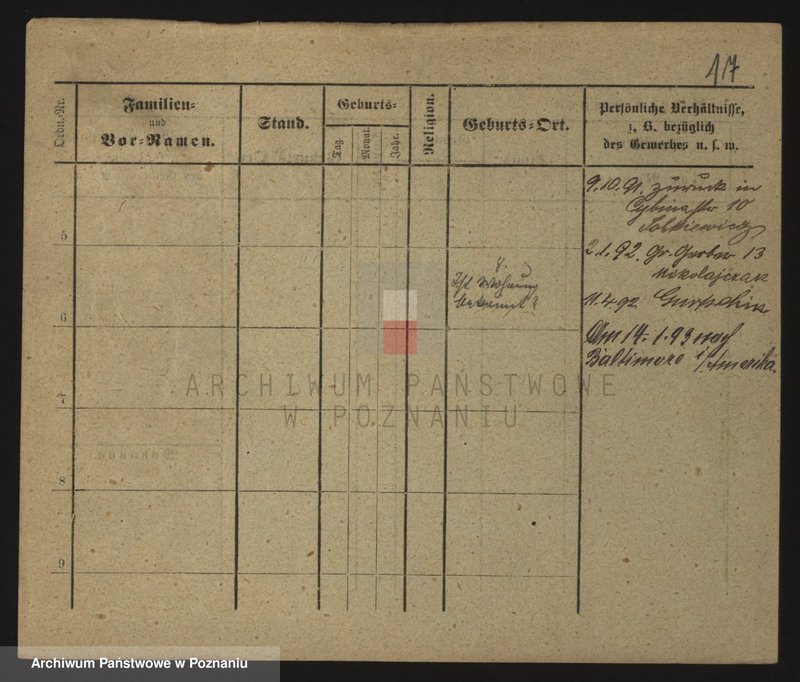 417
Ordn.-Nr.
Familien-
und
Vor-Namen.
Stand.
Geburts-
Tag.
Monat.
Jahr.
Religion.
Geburts-Ort.
Persönliche Verhältnisse,
z. B. bezüglich
des Gewerbes u. s. w.
9.10.91. zurück in
10
2.1.92. Gr. Gerber 13
Mikolajczak
Ist Wohnung
bekannt?
11.4.92.
Am 14.1.93 nach
Baltimore i/Amerika.
5
6
7
8
9
ARCHIWUM PAŃSTWOWE
W POZNANIU
Archiwum Państwowe w Poznaniu